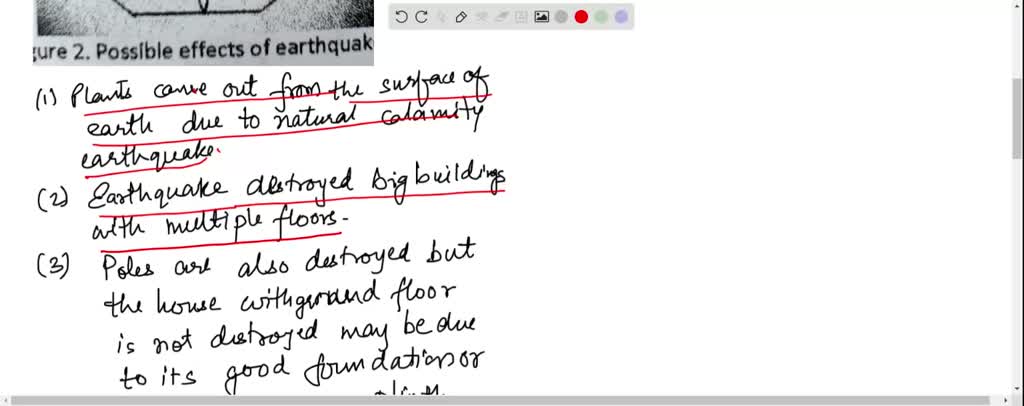 gure 2. Possible effects of earthquak
(1) Plants came out from the surface of
earth due to natural calamity
earthquake.
(2) Earthquake destroyed big buildings
with multiple floors.
(3) Poles are also destroyed but
the house with ground floor
is not destroyed may be due
to its good foundation or